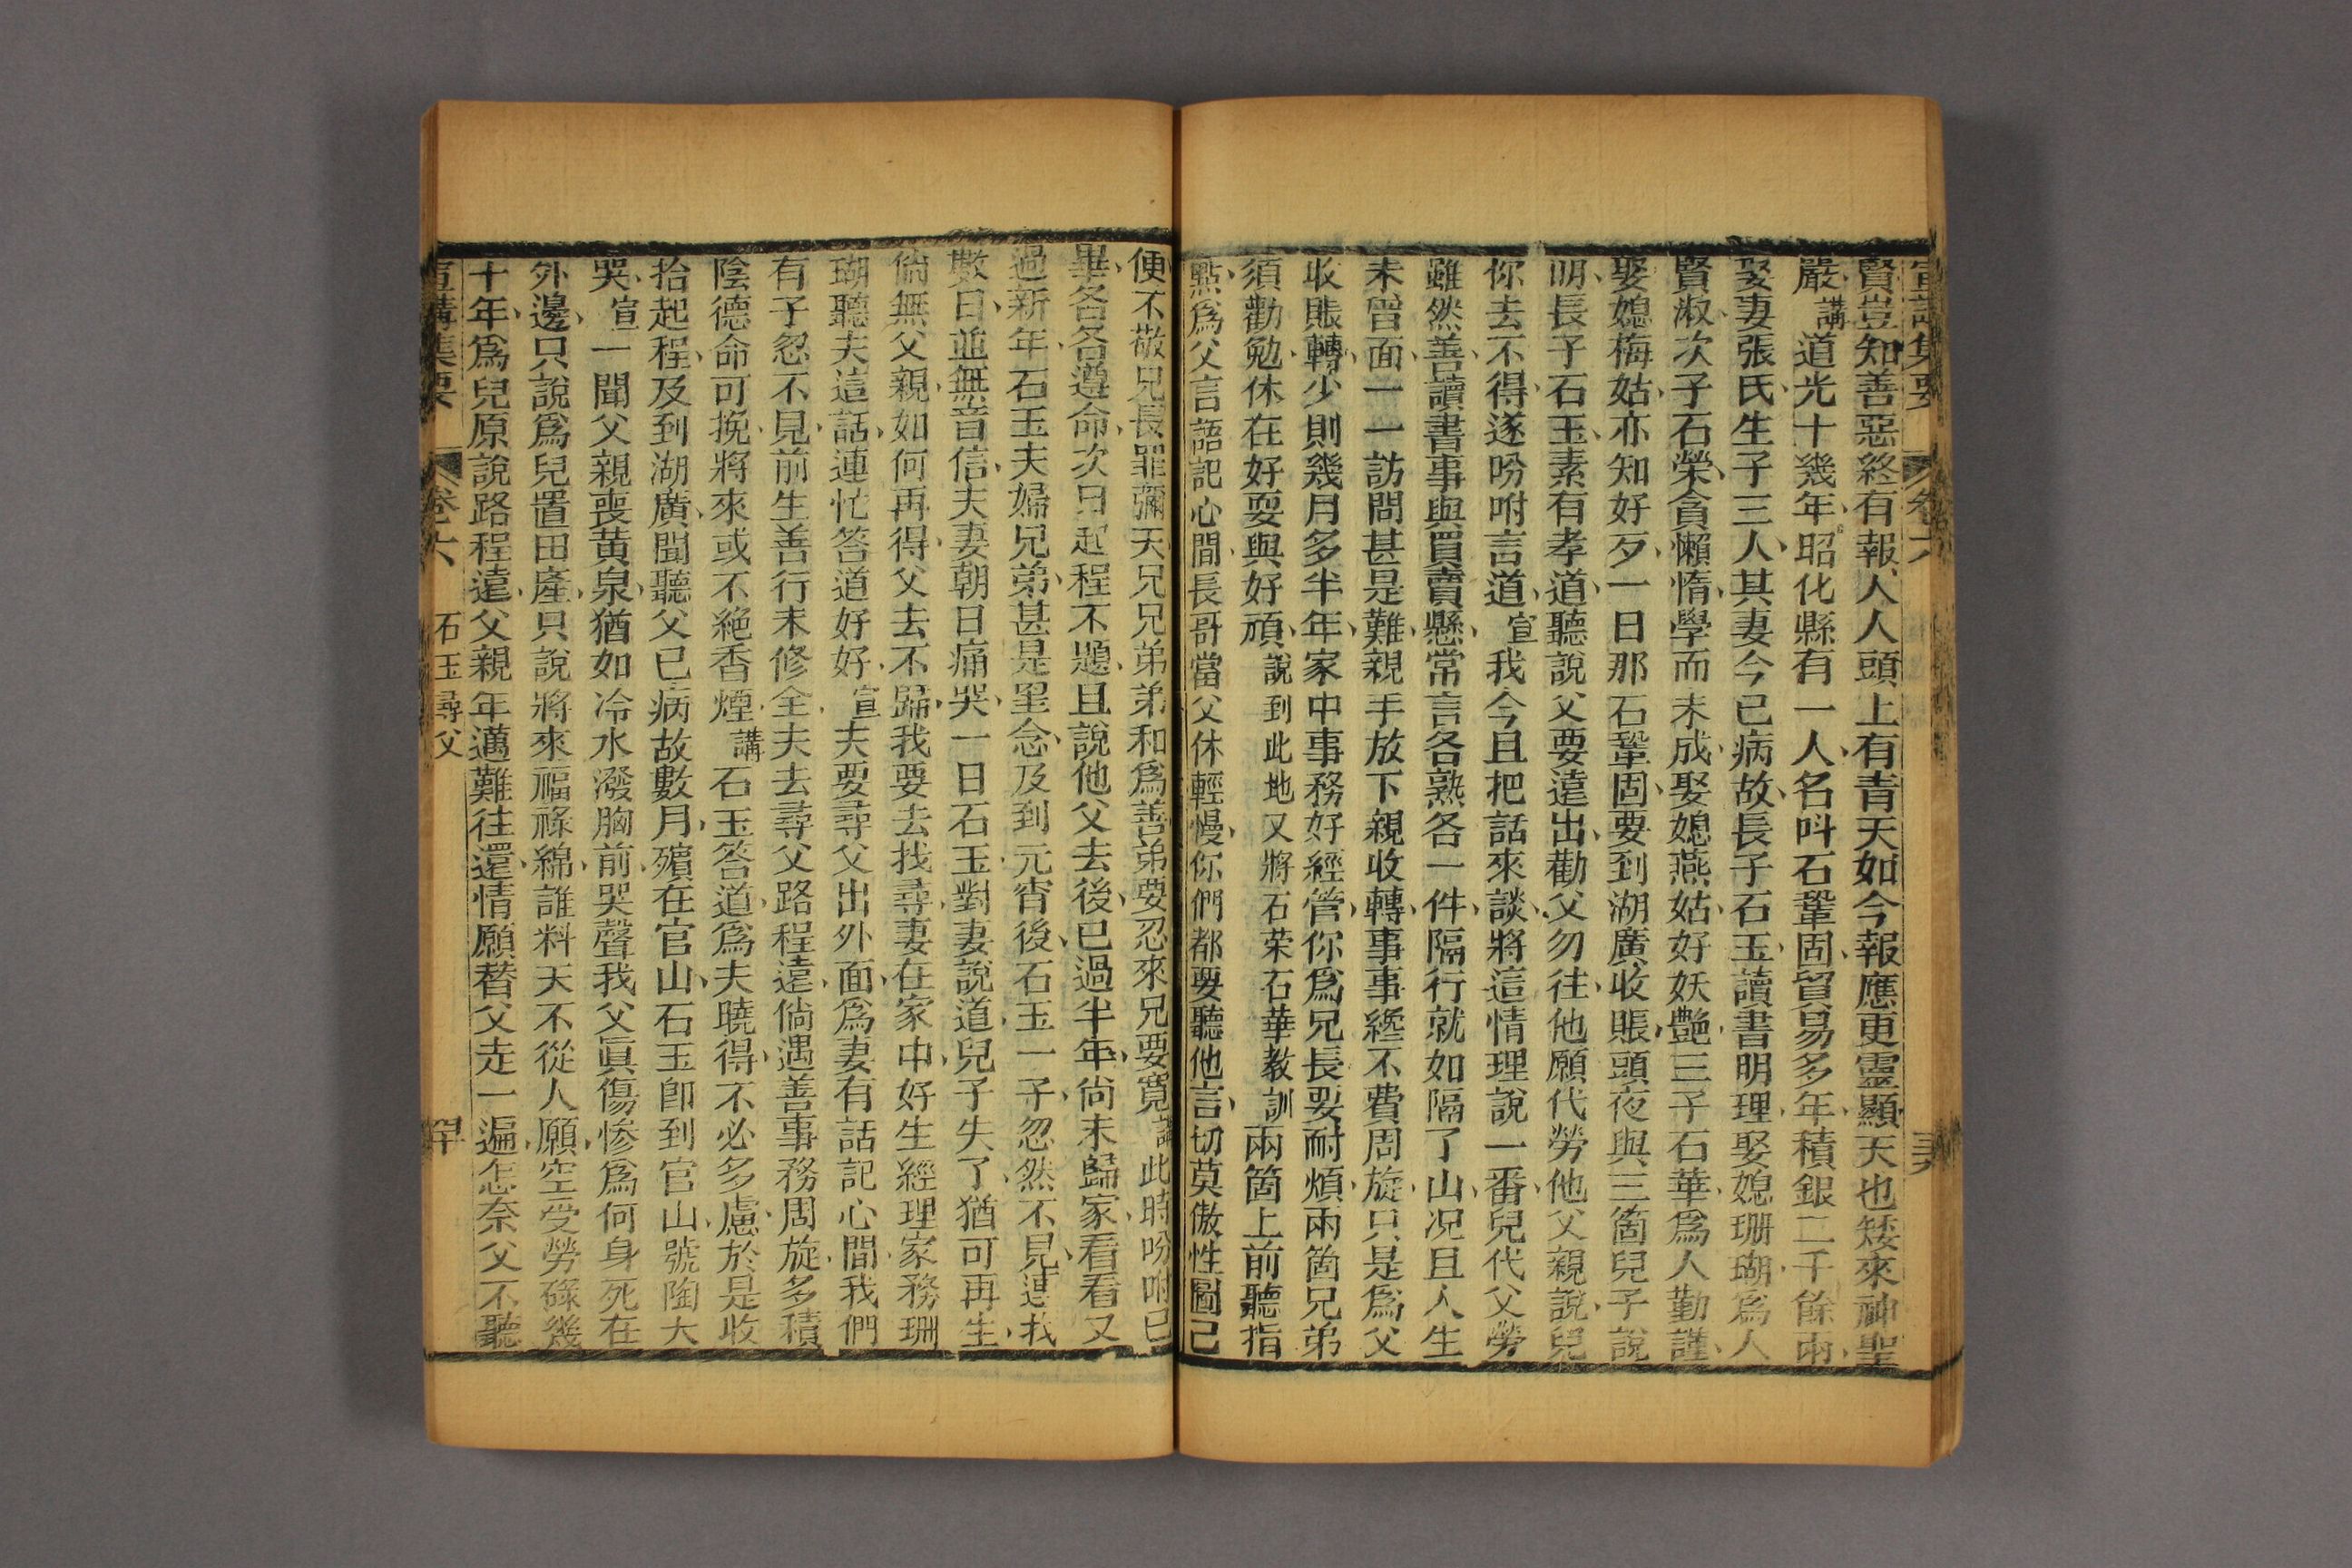 宣講集要 卷六
賢豈知善惡終有報人人頭上有青天如今報應更靈顯天也矮來神聖
嚴講道光十幾年昭化縣有一人名呌石鞏固貿易多年積銀二千餘兩
娶妻張氏生子三人其妻今已病故長子石玉讀書明理娶媳珊瑚爲人
賢淑次子石榮貪懶惰學而未成娶媳燕姑好妖艷三子石華爲人勤謹
娶媳梅姑亦知好歹一日那石鞏固要到湖廣收賬頭夜與三箇兒子說
明長子石玉素有孝道聽說父要遠出勸父勿往他願代勞他父親說兒
你去不得遂吩咐言道宣我今且把話來談將這情理說一番兒代父勞
雖然善讀書事與買賣懸常言各熟各一件隔行就如隔了山况且人生
未曾面一一訪問甚是難親手放下親收轉事事纔不費周旋只是爲父
收賬轉少則幾月多半年家中事務好經管你爲兄長要耐煩兩箇兄弟
須勸勉休在好耍與好頑說到此地又將石荣石華教訓兩箇上前聽指
點爲父言語記心間長哥當父休輕慢你們都要聽他言切莫傲性圖己
便不敬兄長罪彌天兄兄弟弟和爲善弟要忍來兄要寬講此時吩咐已
畢各各遵命次日起程不題且說他父去後已過半年尚未歸家看看又
過新年石玉夫婦兄弟甚是罣念及到元宵後石玉一子忽然不見連找
數日並無音信夫妻朝日痛哭一日石玉對妻說道兒子失了猶可再生
倘無父親如何再得父去不歸我要去找尋妻在家中好生經理家務珊
瑚聽夫這話連忙答道好好宣夫要尋父出外面爲妻有話記心間我們
有子忽不見前生善行未修全夫去尋父路程遠倘遇善事務周旋多積
陰德命可挽將來或不絕香煙講石玉答道爲夫曉得不必多慮於是收
拾起程及到湖廣聞聽父已病故數月殯在官山石玉卽到官山號陶大
哭宣一聞父親喪黃泉猶如冷水潑胸前哭聲我父眞傷慘爲何身死在
外邊只說爲兒置田產只說將來福祿綿誰料天不從人願空受勞碌幾
十年爲兒原說路程遠父親年邁難往還情願替父走一遍怎奈父不聽
宣講集要 卷六 石玉尋父